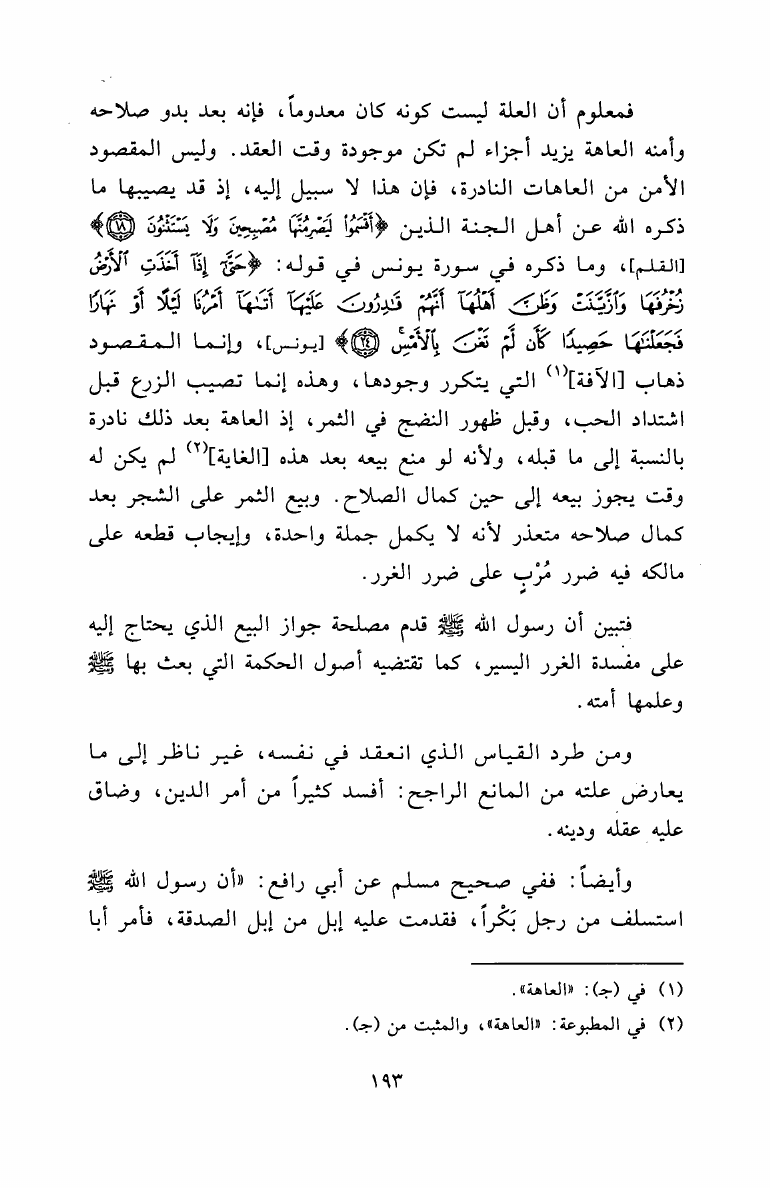 فمعلوم أن العلة ليست كونه كان معدوماً، فإنه بعد بدو صلاحه
وأمنه العاهة يزيد أجزاء لم تكن موجودة وقت العقد. وليس المقصود
الأمن من العاهات النادرة، فإن هذا لا سبيل إليه، إذ قد يصيبها ما
ذكره الله عن أهل الجنة الذين ﴿أَقْسَمُوا۟ لَيَصْرِمُنَّهَا مُصْبِحِينَ وَلَا يَسْتَثْنُونَ ۝١٨﴾
[القلم]، وما ذكره في سورة يونس في قوله: ﴿حَتَّىٰٓ إِذَآ أَخَذَتِ ٱلْأَرْضُ
زُخْرُفَهَا وَٱزَّيَّنَتْ وَظَنَّ أَهْلُهَآ أَنَّهُمْ قَٰدِرُونَ عَلَيْهَآ أَتَىٰهَآ أَمْرُنَا لَيْلًا أَوْ نَهَارًا
فَجَعَلْنَٰهَا حَصِيدًا كَأَن لَّمْ تَغْنَ بِٱلْأَمْسِ ۝٢٤﴾ [يونس]، وإنما المقصود
ذهاب [الآفة](١) التي يتكرر وجودها، وهذه إنما تصيب الزرع قبل
اشتداد الحب، وقبل ظهور النضج في الثمر، إذ العاهة بعد ذلك نادرة
بالنسبة إلى ما قبله، ولأنه لو منع بيعه بعد هذه [الغاية](٢) لم يكن له
وقت يجوز بيعه إلى حين كمال الصلاح. وبيع الثمر على الشجر بعد
كمال صلاحه متعذر لأنه لا يكمل جملة واحدة، وإيجاب قطعه على
مالكه فيه ضرر مُرْبٍ على ضرر الغرر.
فتبين أن رسول الله ﷺ قدم مصلحة جواز البيع الذي يحتاج إليه
على مفسدة الغرر اليسير، كما تقتضيه أصول الحكمة التي بعث بها ﷺ
وعلمها أمته.
ومن طرد القياس الذي انعقد في نفسه، غير ناظر إلى ما
يعارض علته من المانع الراجح: أفسد كثيراً من أمر الدين، وضاق
عليه عقله ودينه.
وأيضاً: ففي صحيح مسلم عن أبي رافع: «أن رسول الله ﷺ
استسلف من رجل بَكْراً، فقدمت عليه إبل من إبل الصدقة، فأمر أبا
(١) في (جـ): «العاهة».
(٢) في المطبوعة: «العاهة»، والمثبت من (جـ).
١٩٣